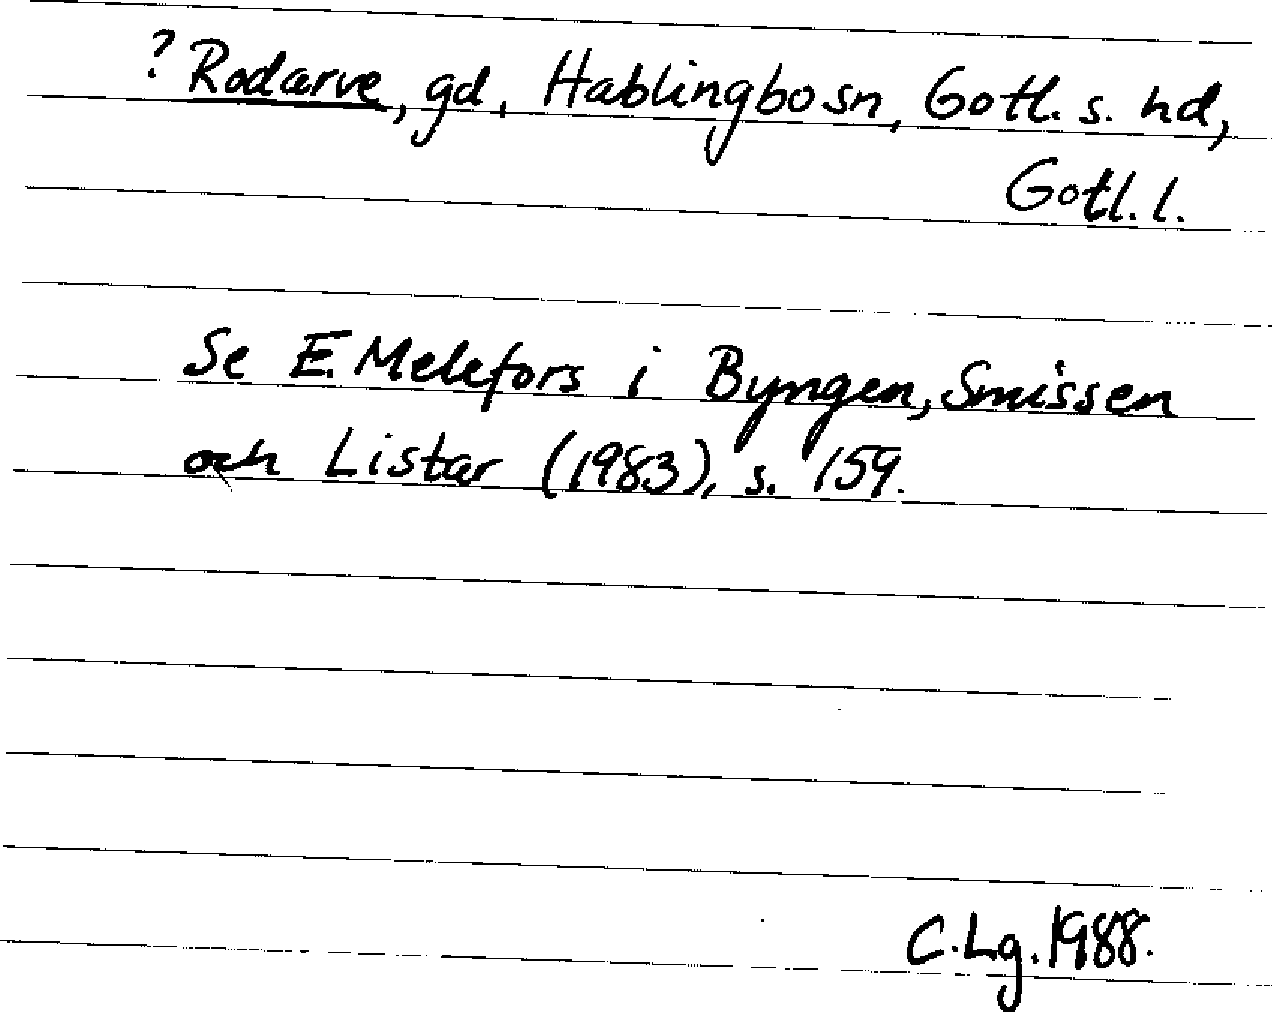 ? Rodarve, gd, Hablingbo sn, Gotl. s. hd,
Gotl. l.
Se E. Melefors i Byngen, Smissen
och Listar (1983), s. 159.
C. Lg. 1988.